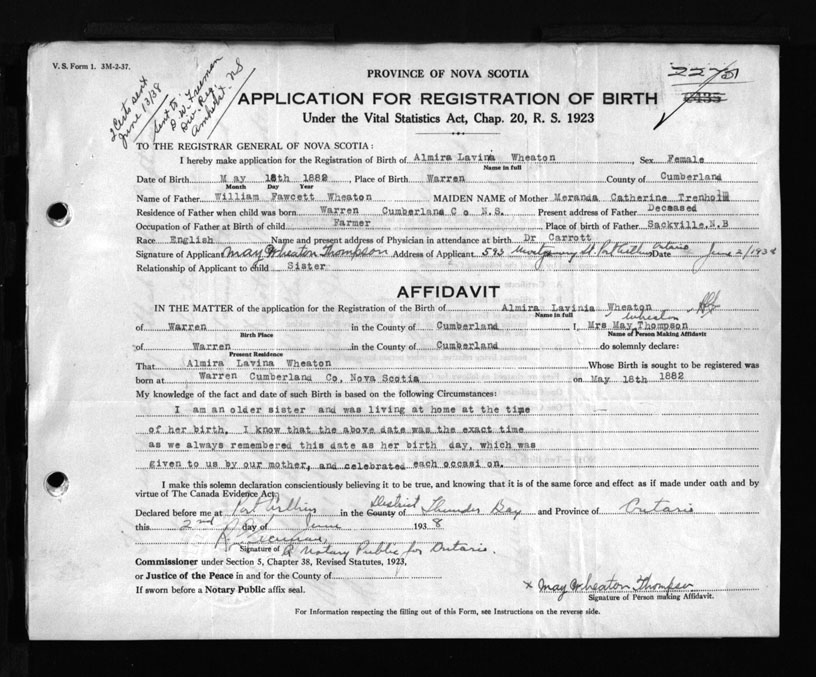 V. S. Form 1. 3M-2-37.
2 Certs sent
June 13/38
Sent to
D. W. Freeman
Div. Reg.
Amherst NS
PROVINCE OF NOVA SCOTIA
APPLICATION FOR REGISTRATION OF BIRTH
Under the Vital Statistics Act, Chap. 20, R. S. 1923
TO THE REGISTRAR GENERAL OF NOVA SCOTIA:
I hereby make application for the Registration of Birth of Almira Lavina Wheaton Sex Female
Name in full
Date of Birth May 18th 1882 Place of Birth Warren County of Cumberland
Month Day Year
Name of Father William Fawcett Wheaton MAIDEN NAME of Mother Meranda Catherine Trenholm
Residence of Father when child was born Warren Cumberland Co N.S. Present address of Father Deceased
Occupation of Father at Birth of child Farmer Place of birth of Father Sackville.N.B
Race English Name and present address of Physician in attendance at birth Dr Carrott
Signature of Applicant May Wheaton Thompson Address of Applicant 593 St. Port Arthur Ontario Date June 2/1938
Relationship of Applicant to child Sister
AFFIDAVIT
IN THE MATTER of the application for the Registration of the Birth of Almira Lavinia Wheaton
Name in full
Wheaton
of Warren in the County of Cumberland I, Mrs May Thompson
Birth Place Name of Person Making Affidavit
of Warren in the County of Cumberland do solemnly declare:
Present Residence
That Almira Lavina Wheaton Whose Birth is sought to be registered was
born at Warren Cumberland Co. Nova Scotia on May 18th 1882
My knowledge of the fact and date of such Birth is based on the following Circumstances:
I am an older sister and was living at home at the time
of her birth. I know that the above date was the exact time
as we always remembered this date as her birth day, which was
given to us by our mother, and celebrated each occasion.
I make this solemn declaration conscientiously believing it to be true, and knowing that it is of the same force and effect as if made under oath and by
virtue of The Canada Evidence Act.
Declared before me at Port Arthur in the County of District Thunder Bay and Province of Ontario
this 2nd day of June 1938
Signature of A Notary Public for Ontario.
Commissioner under Section 5, Chapter 38, Revised Statutes, 1923,
or Justice of the Peace in and for the County of
If sworn before a Notary Public affix seal.
x May Wheaton Thompson
Signature of Person making Affidavit.
For Information respecting the filling out of this Form, see Instructions on the reverse side.